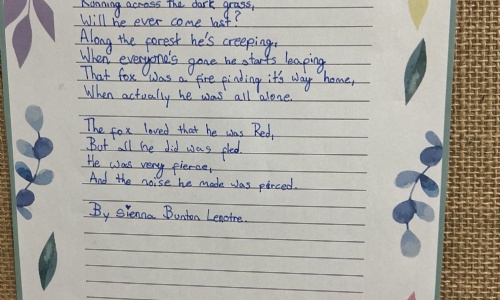 Running across the dark grass,
Will he ever come last?
Along the forest he's creeping,
When everyone's gone he starts leaping
That fox was a fire finding it's way home,
When actually he was all alone.
The fox loved that he was Red,
But all he did was fled.
He was very fierce,
And the noise he made was pierced.
By Sienna Bunton Lenotre.